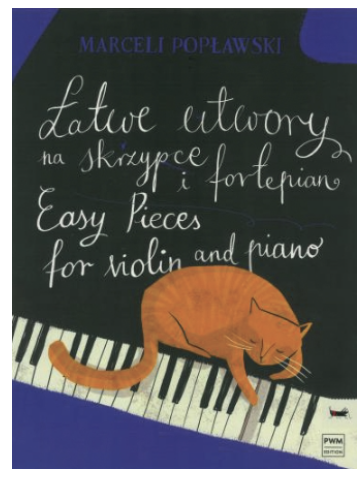 MARCELI POPŁAWSKI
Łatwe utwory
na skrzypce
i fortepian
Easy Pieces
for violin and piano
PWM
EDITION